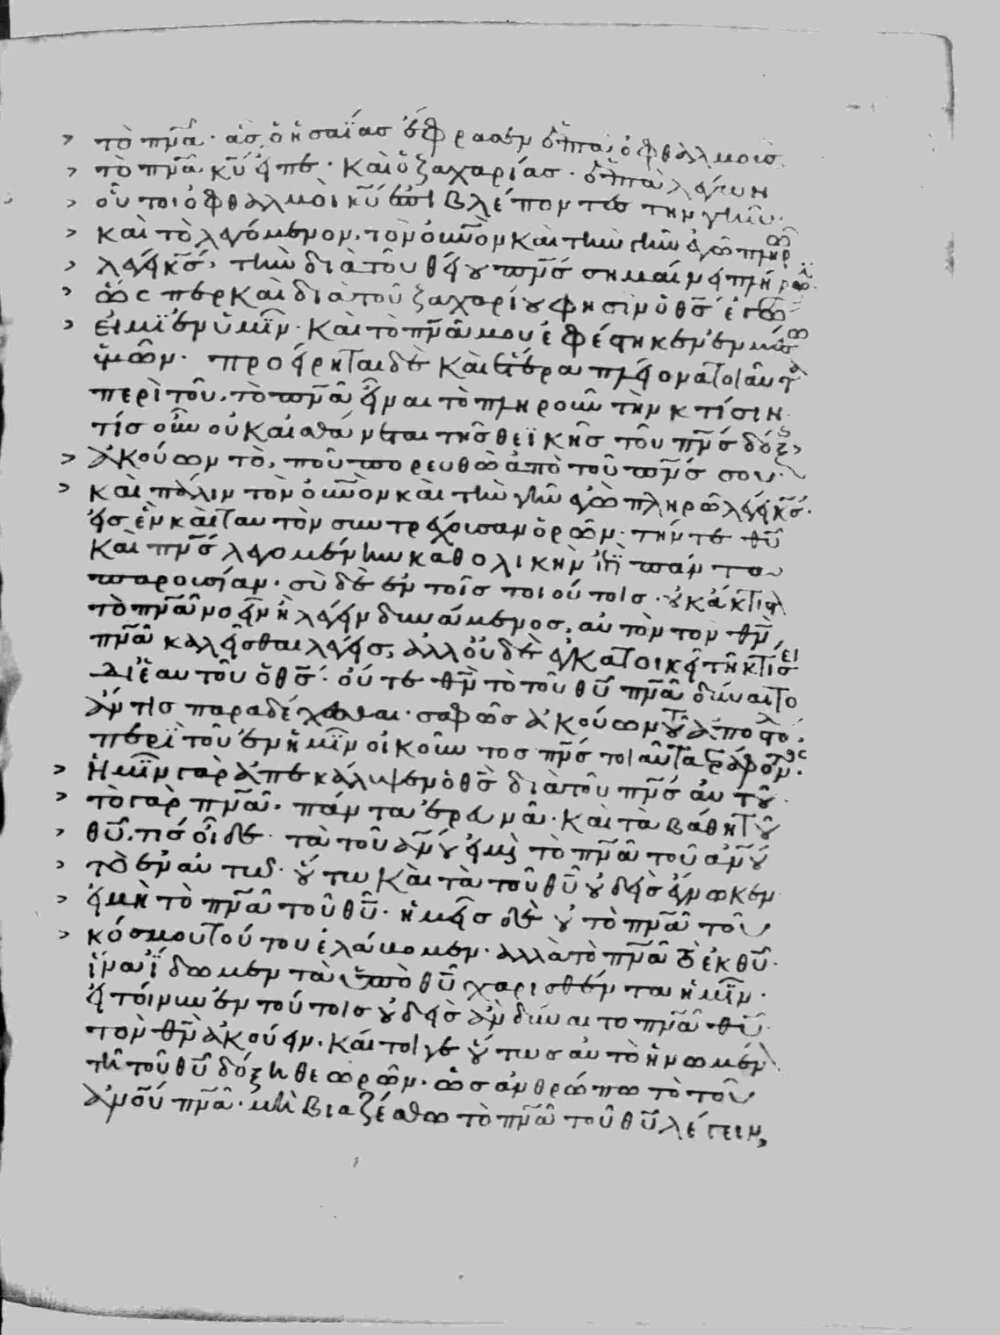 τὸ πν̅α̅· ἃς ὁ ἡσαΐας ἔφρασεν ἑπτὰ ὀφθαλμοὺς
τὸ πν̅α̅ κ̅υ̅ εἶπε· Καὶ ὁ ζαχαρίας· ἑπτὰ λέγων
οὗτοι ὀφθαλμοὶ κ̅υ̅ εἰσὶ βλέποντες τὴν γῆν·
καὶ τὸ λεγόμενον, τὸν ο̅υ̅ν̅ο̅ν̅ καὶ τὴν γῆν ἐγὼ πληρῶ
λέγει κ̅ς̅, τὴν διὰ τοῦ θείου πν̅ς̅ σημαίνει πλήρωσιν·
ὥσπερ καὶ διὰ τοῦ ζαχαρίου φησὶν ὁ θ̅ς̅ ἐγώ
εἰμι ἐν ὑμῖν· Καὶ τὸ πν̅α̅ μου ἐφέστηκεν ἐν μέσω
ὑμῶν· προείρηται δὲ καὶ ἕτερα πλείονα τοιαῦτα
περὶ τοῦ, τὸ πν̅α̅ εἶναι τὸ πληροῦν τὴν κτίσιν·
τίς οὖν οὐκ αἰσθάνεται τῆς θεϊκῆς τοῦ πν̅ς̅ δόξης
ἀκούων τὸ, ποῦ πορευθῶ ἀπὸ τοῦ πν̅ς̅ σου·
καὶ πάλιν τὸν ο̅υ̅ν̅ο̅ν̅ καὶ τὴν γῆν ἐγὼ πληρῶ λέγει κ̅ς̅·
εἰς ἓν καὶ ταυτὸν συντρέχουσαν ὁρῶν· τήν τε θ̅υ̅
Καὶ πν̅ς̅ λεγομένην καθολικὴν ἐπὶ πάντα
παρουσίαν· σὺ δὲ ἐν τοῖς τοιούτοις· οὐκ ἀκτιστ
τὸ πν̅α̅ μόνον ἢ λέγειν δυνάμενος, αὐτὸν τὸν θ̅ν̅,
πν̅α̅ καλεῖσθαι λέγεις, ἀλλ' οὐδὲ εἰ κατοικεῖ τῇ κτίσει
δι' ἑαυτοῦ ὁ θ̅ς̅· οὔτε θ̅ν̅ τὸ τοῦ θ̅υ̅ πν̅α̅ δύναιτο
ἄν τις παραδέχεσθαι· σαφῶς ἀκούων τοῦ ἀποστόλου
περὶ τοῦ ἐν ἡμῖν οἰκοῦντος πν̅ς̅ τοιαῦτα γράφοντος·
Ἡμῖν γὰρ ἀπεκάλυψεν ὁ θ̅ς̅ διὰ τοῦ πν̅ς̅ αὐτοῦ·
τὸ γὰρ πν̅α̅· πάντα ἐρευνᾶ· Καὶ τὰ βάθη τοῦ
θ̅υ̅· τίς οἶδε τὰ τοῦ ἀν̅ο̅υ̅ εἰ μὴ τὸ πν̅α̅ τοῦ ἀν̅ο̅υ̅
τὸ ἐν αὐτῶ· οὕτω καὶ τὰ τοῦ θ̅υ̅ οὐδεὶς ἔγνωκεν
εἰ μὴ τὸ πν̅α̅ τοῦ θ̅υ̅· ἡμεῖς δὲ οὐ τὸ πν̅α̅ τοῦ
κόσμου τούτου ἐλάβομεν· ἀλλὰ τὸ πν̅α̅ τὸ ἐκ θ̅υ̅·
ἵνα ἴδωμεν τὰ ὑπὸ θ̅υ̅ χαρισθέντα ἡμῖν·
ἤτοίνυν ἐν τούτοις οὐδεὶς ἂν δύναιτο πν̅α̅ θ̅υ̅
τὸν θ̅ν̅ ἀκούειν· Καίτοι γε οὕτως αὐτὸ ἡνωμένον
τῇ τοῦ θ̅υ̅ δόξῃ θεωρῶν· ὡς ἀνθρώπω τὸ τοῦ
ἀν̅ο̅υ̅ πν̅α̅· μὴ βιαζέσθω τὸ πν̅α̅ τοῦ θ̅υ̅ λέγειν,